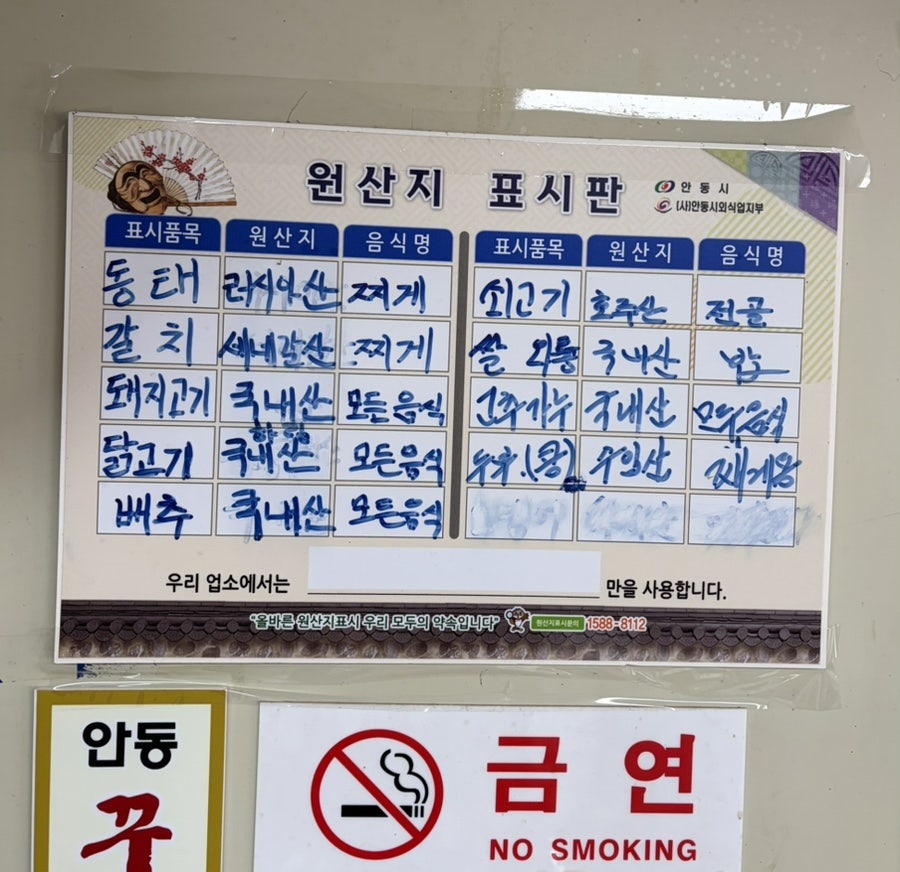 원산지 표시판
안동시
(사)안동시외식업지부
표시품목 원산지 음식명 표시품목 원산지 음식명
동태 러시아산 찌게 쇠고기 호주산 전골
갈치 세네갈산 찌게 쌀 국내산 밥
돼지고기 국내산 모든음식 고추가누 국내산 모두음식
닭고기 국내산 모든음식 두부.(콩) 수입산 찌게용
배추 국내산 모든음식
우리 업소에서는 만을 사용합니다.
"올바른 원산지표시 우리 모두의 약속입니다" 원산지표시문의 1588-8112
안동
꾸
금연
NO SMOKING